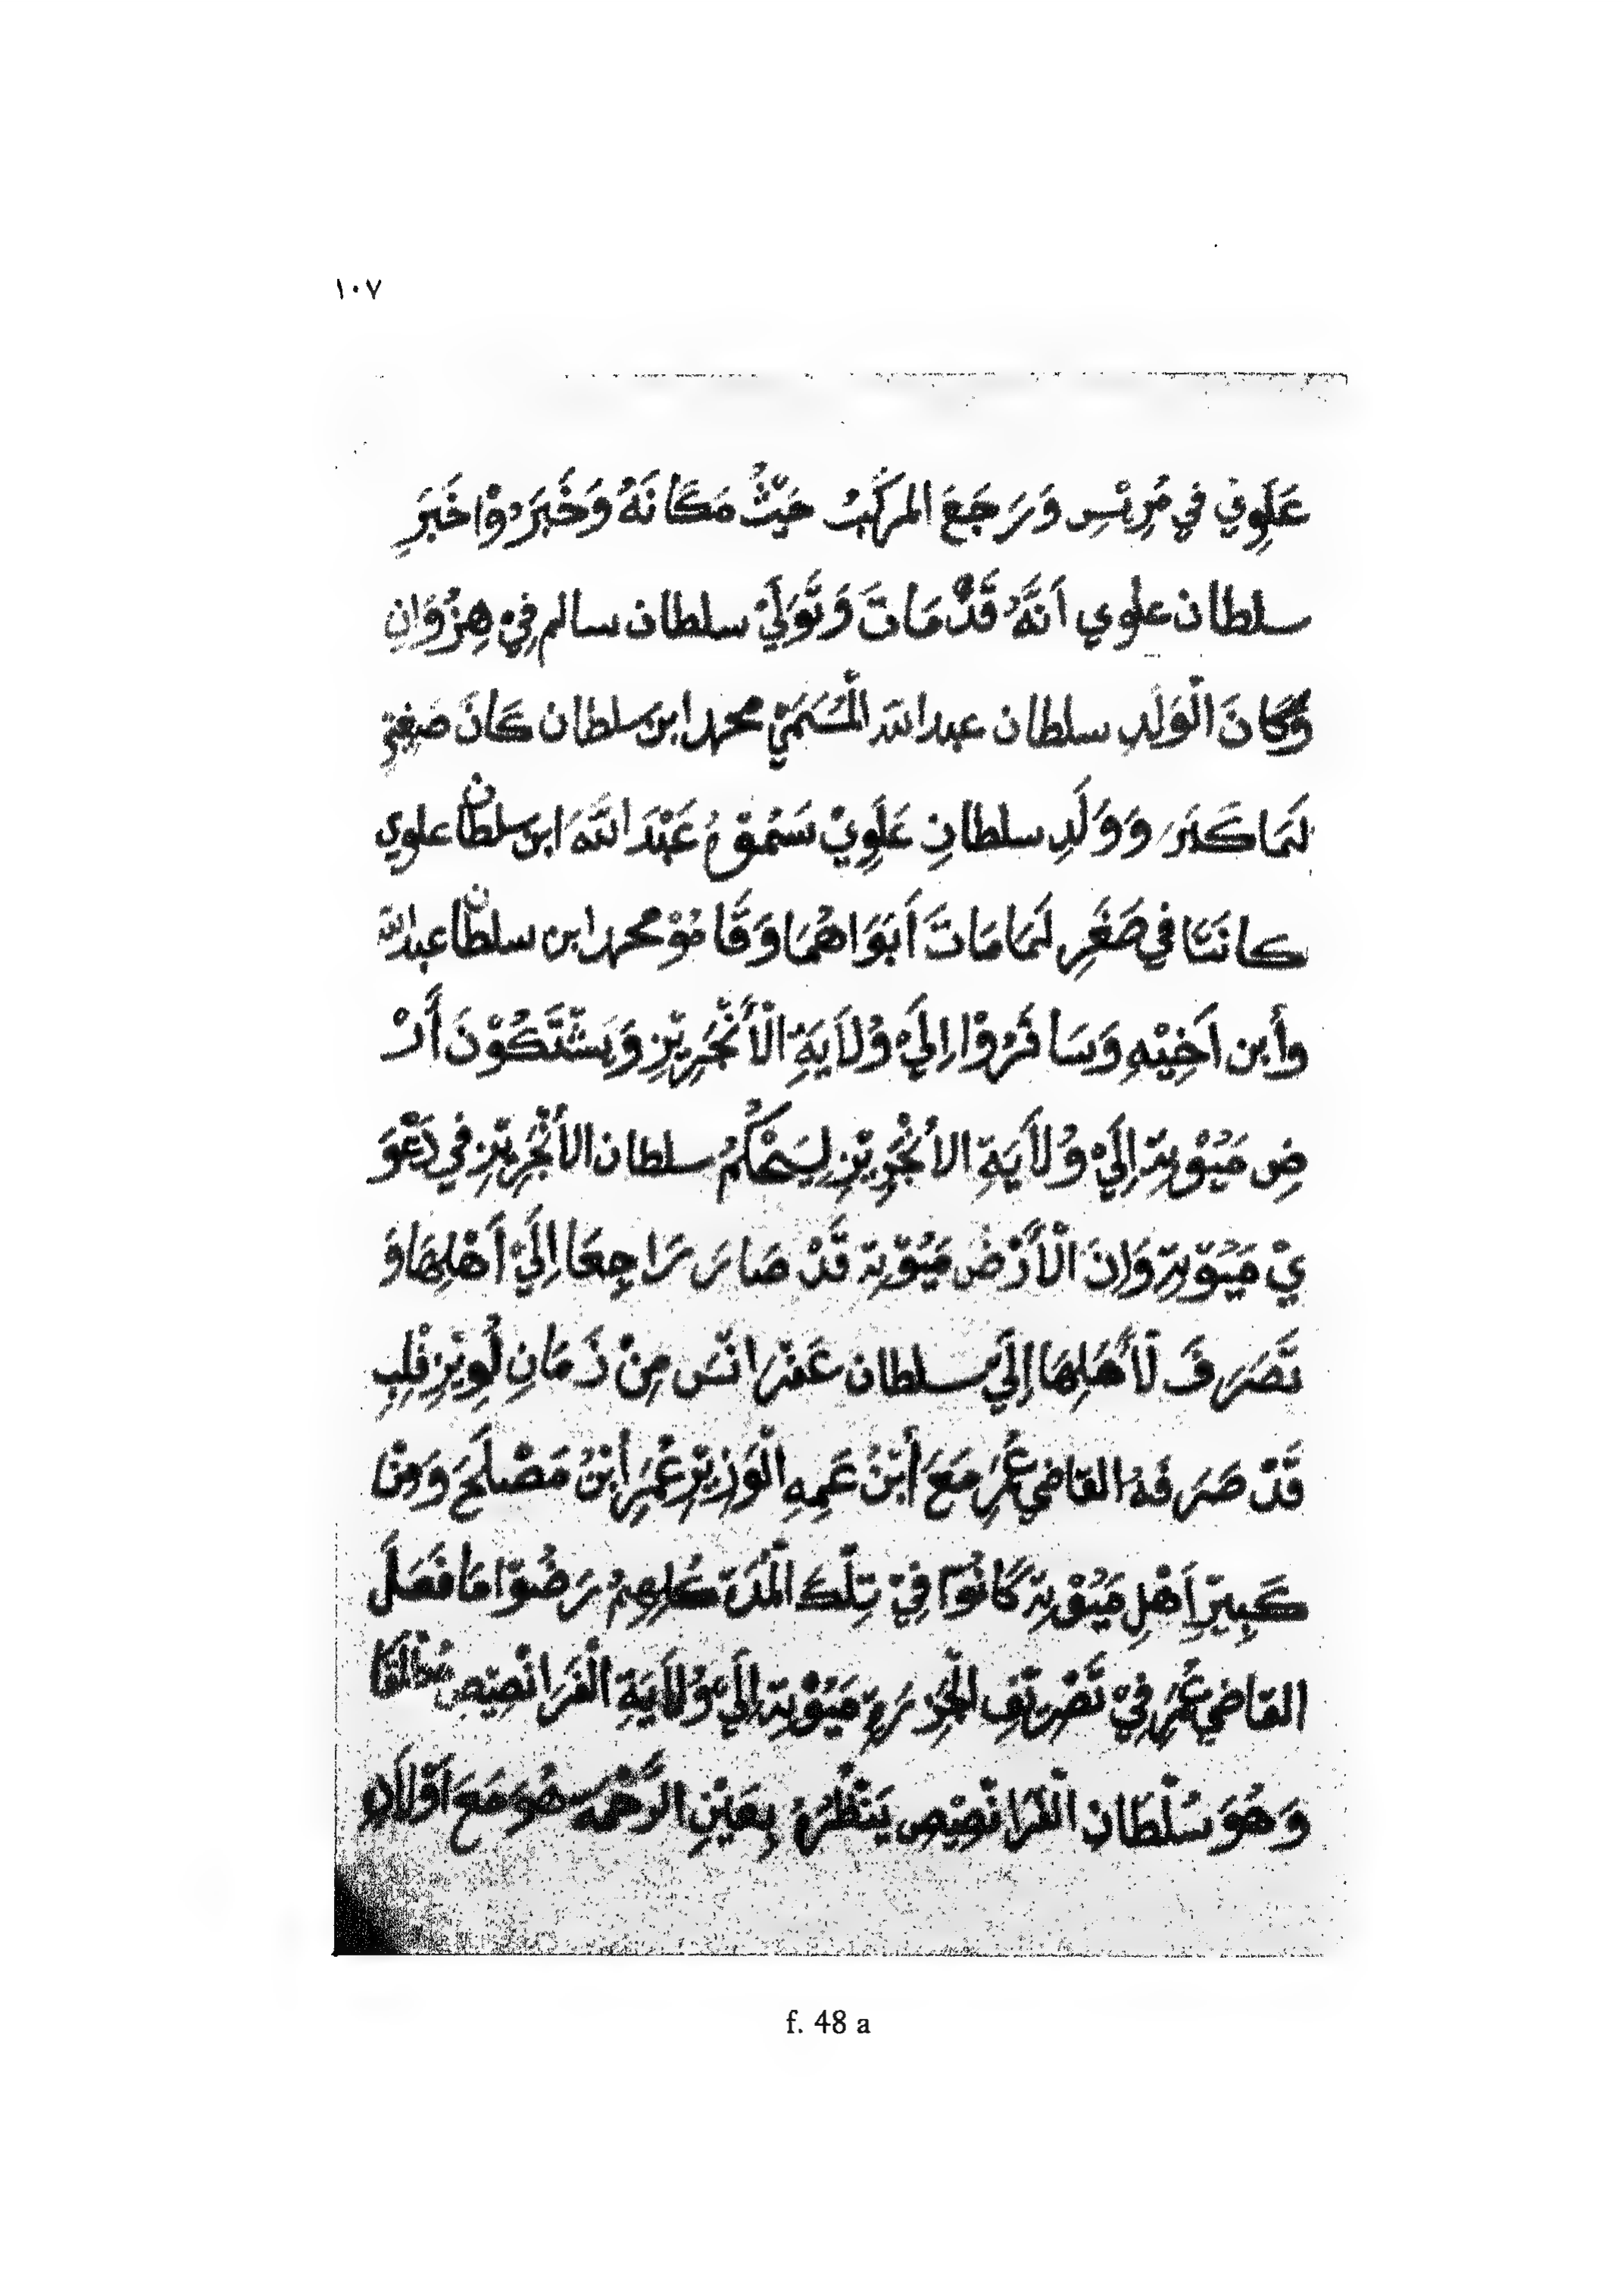 ١٠٧
عَلَوِي فِي مُرِيْسِ وَرَجَعَ المركَبُ حَيْثُ مَكَانَهُ وَخَبَرُوْا خَبَرِ
سلطان علوي اَنَّهُ قَدْ مَاتَ وَتَوَلَيْ سلطان سالم فِيْ هِنْزُوَانِ
وَكَانَ الْوَلَدِ سلطان عبد الله الْمُسَمَيْ محمد ابن سلطان كَانَ صَغِيْرِ
لَمَا كَبَرَ وَوَلَدِ سلطانِ عَلَوِيْ سَمُوْهُ عَبْدَ اللهَ ابن سلطان علوي
كانَتَا فِي صَغَرِ لَمَا مَاتَ أَبَوَاهُمَا وَقَامُوْ محمد ابن سلطان عبد الله
وأبن اَخِيْهِ وَسَافَرُوْا اِلَيْ وُلَايَةِ الْأَنْجَرِيْزِ وَيَشْتَكُوْنَ أَرْ
ضِ مَيُوْتِة اِلَيْ وُلَايَةِ الأنْجَرِيْزِ لِيَحْكُمُ سلطان الأنْجَرِيْزِ فِي دَعْوَ
يْ مَيُوْتِة وَاِنَ الْأَرْضَ مَيُوْتِة قَدْ صَارَ رَاجِعَا اِلَيْ اَهْلِهَا وَ
تَصَرَفَ لَأهَلِهَا اِلَيْ سلطان عَفْرَانْسَ مِنْ زَمَانِ لُوِيْزِ فْلِبِ
قَدْ صَرَفَهُ القاضي عُمَرِ مَعَ أَبْنُ عَمِهِ الْوَزِيْرِ عُمَرِ أَبْنُ مَصْلَحَ وَمِنْ
كَبِيْرِ اَهْلِ مَيُوْتِة كَانُوْا فِيْ تِلْكَ الْمُدَة كُلِهِمُ رَضُوْا مَا فَعَلَ
القاضي عُمَرِ فِيْ تَصْرِيْفِ الْجَزِيْرَةِ مَيُوْتِة اِلَيْ وُلَايَةِ الْفَرَانْصِيْصِ مُطْلَقَا
وَهُوَ سُلْطَانِ الْفَرَانْصِيْصِ يَنْظُرَهُ بِعَيْنِ الرَّحْمَة هُوَ مَعَ اَوْلَادِهِ
f. 48 a